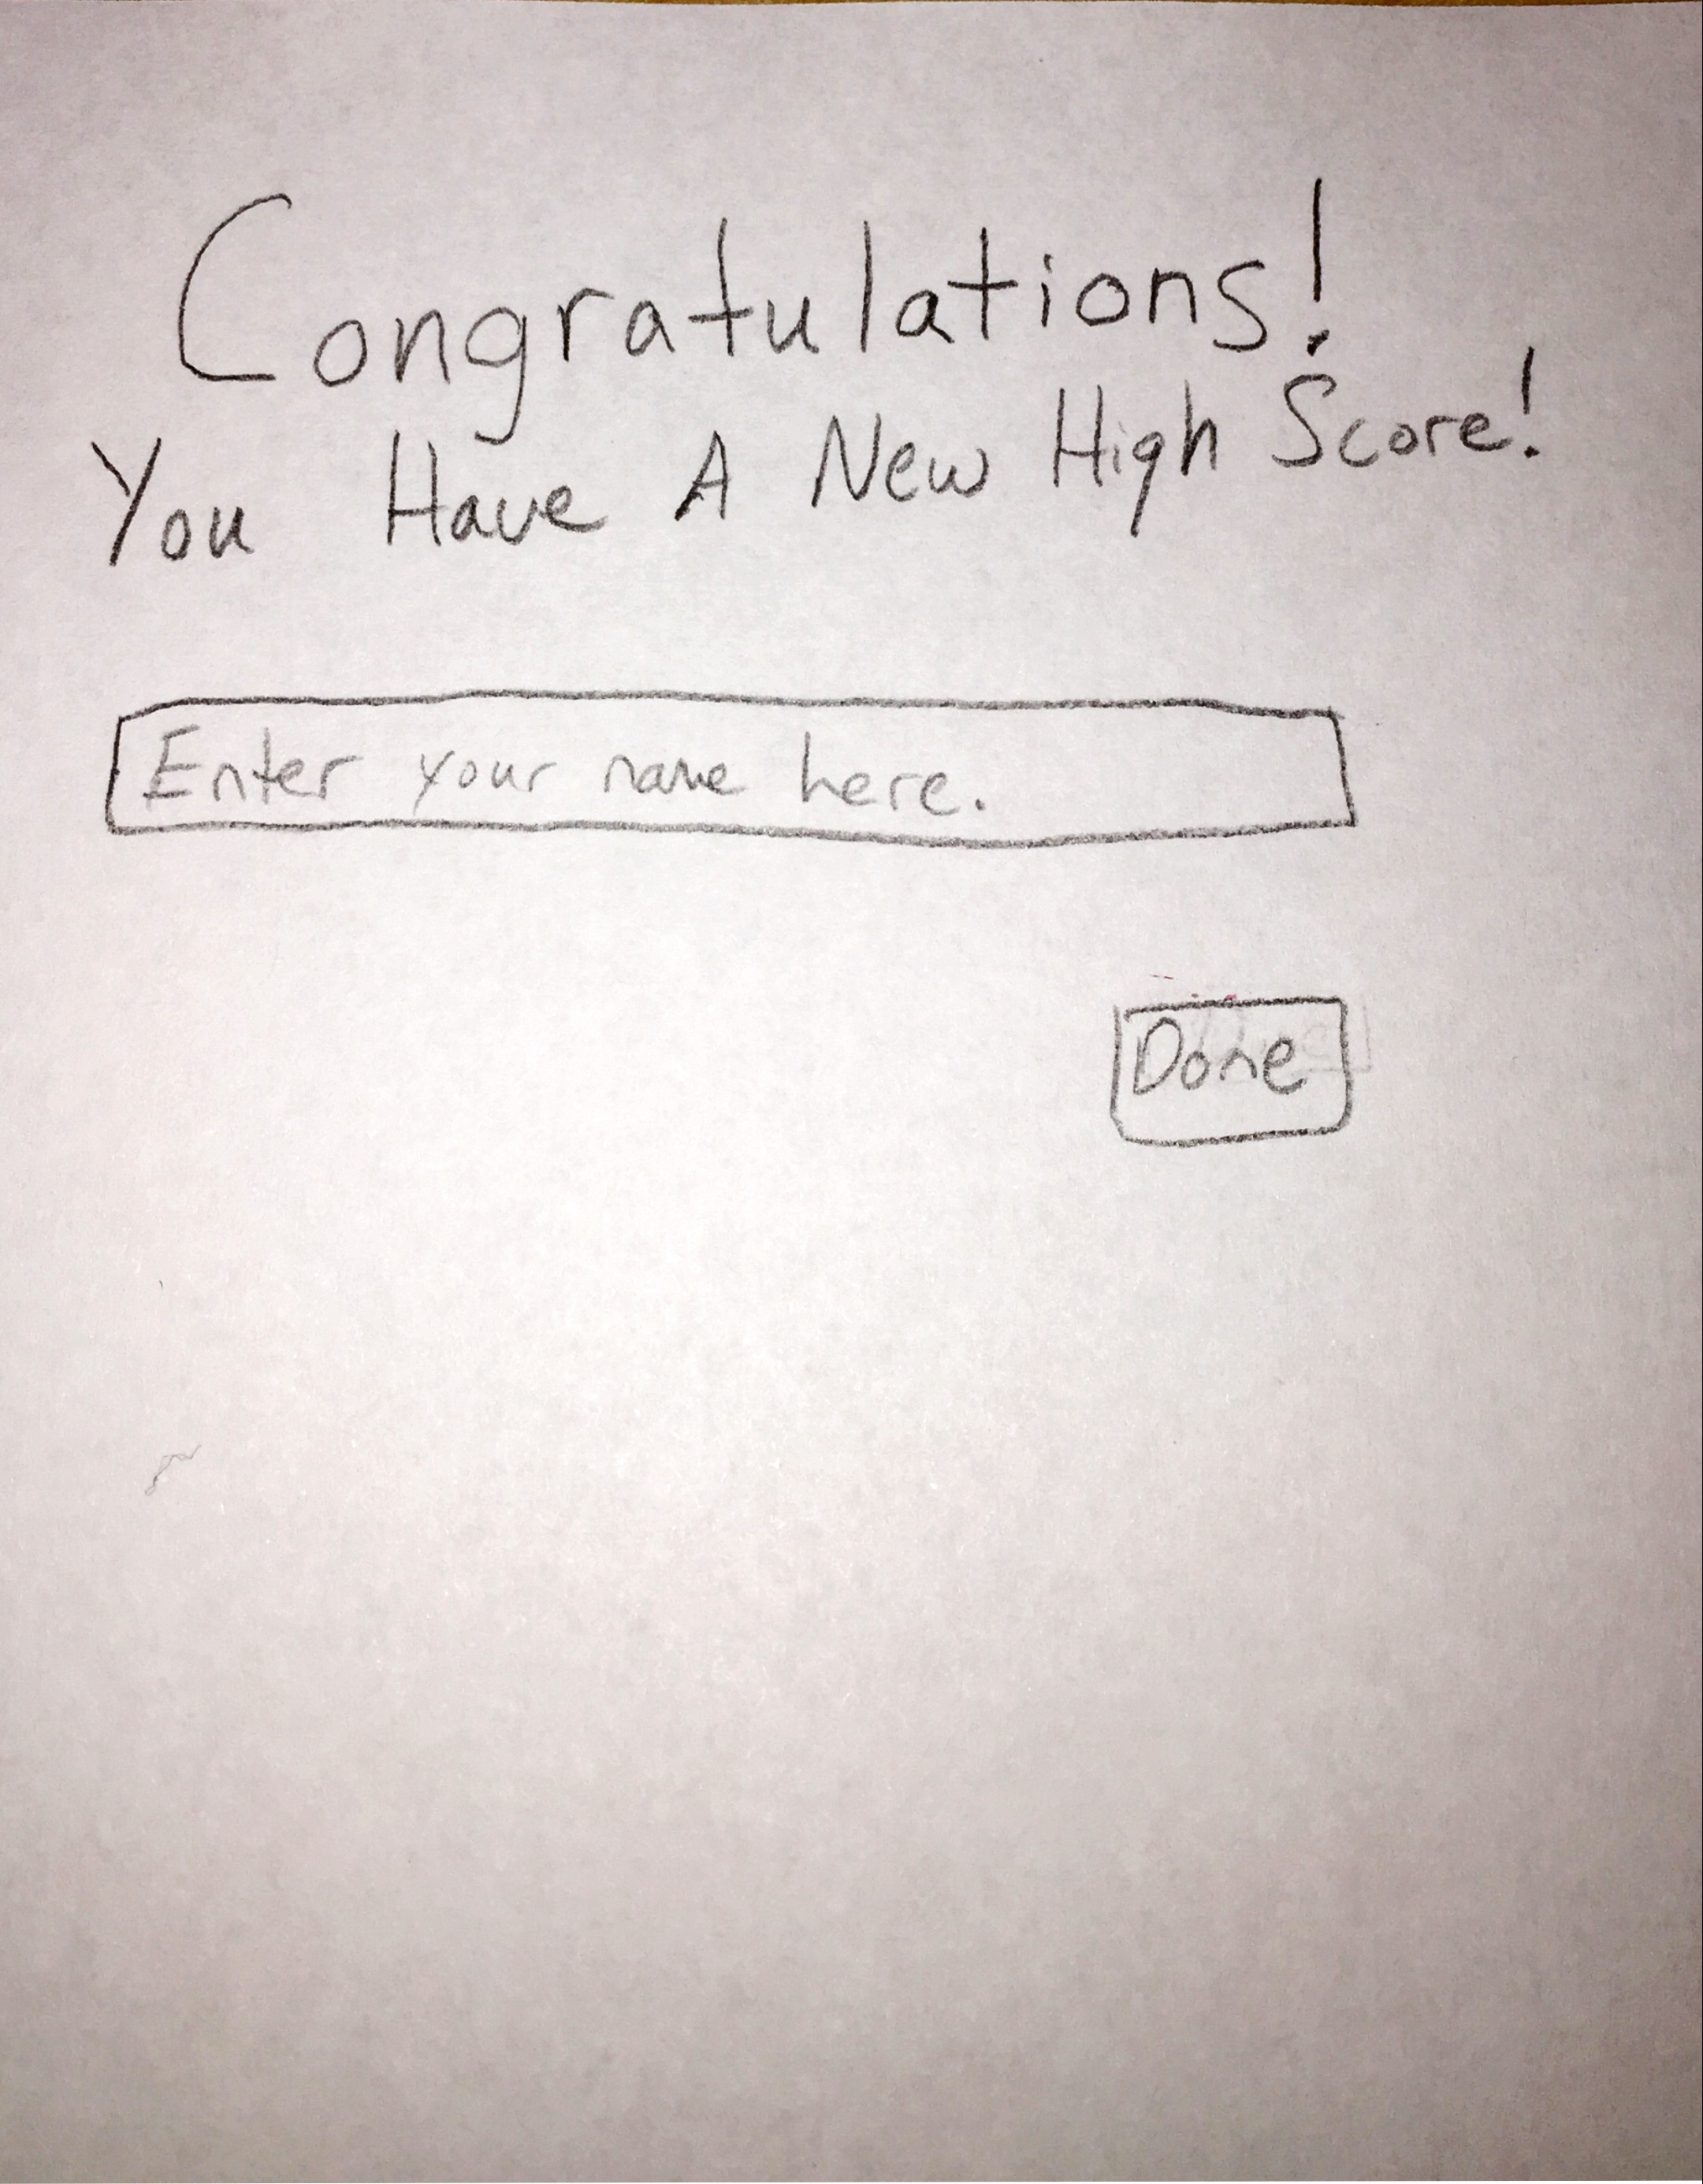 Congratulations!
You Have A New High Score!
Enter your name here.
Done